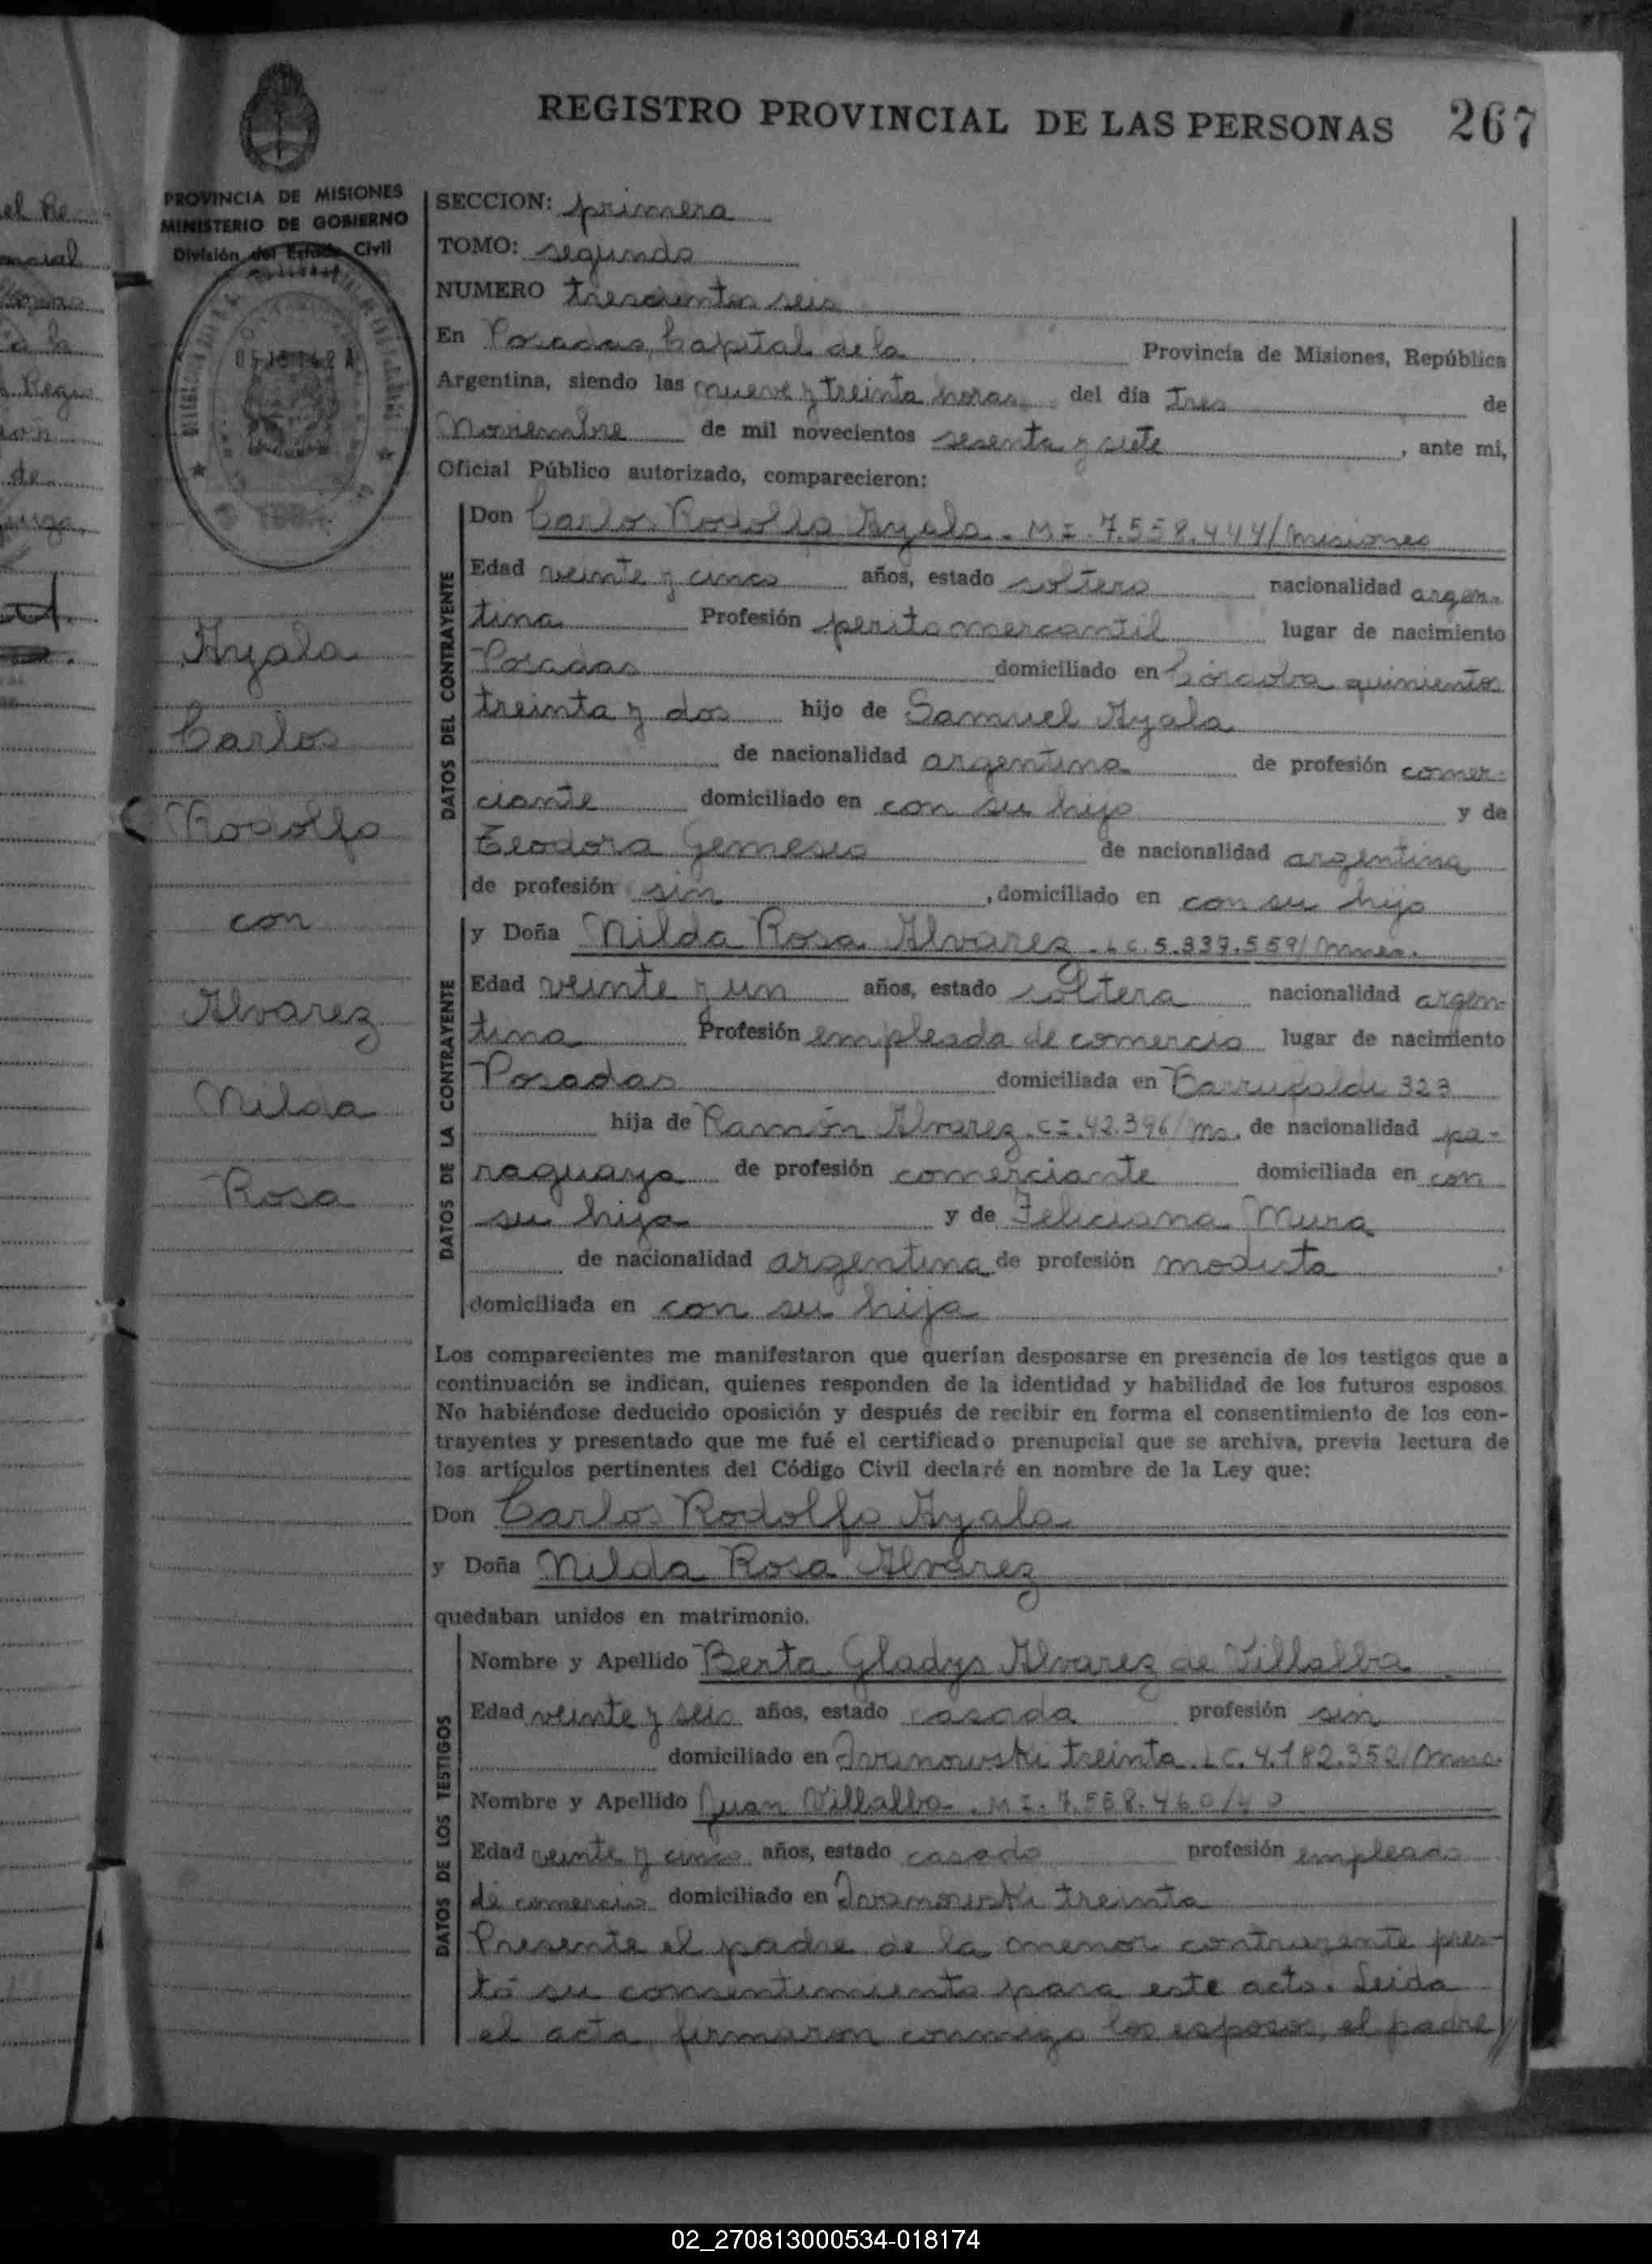 REGISTRO PROVINCIAL DE LAS PERSONAS 267
PROVINCIA DE MISIONES
MINISTERIO DE GOBIERNO
División del Estado Civil
SECCION: primera
TOMO: segundo
NUMERO trescientos seis
En Posadas, Capital de la Provincia de Misiones, República
Argentina, siendo las nueve y treinta horas del día Tres de
Noviembre de mil novecientos sesenta y siete, ante mi,
Oficial Público autorizado, comparecieron:
DATOS DEL CONTRAYENTE
Don Carlos Rodolfo Ayala. M I. 7.558.444/Misiones
Edad veinte y cinco años, estado soltero nacionalidad argen-
tina Profesión perito mercantil lugar de nacimiento
Posadas domiciliado en Córdoba quinientos
treinta y dos hijo de Samuel Ayala
de nacionalidad argentina de profesión comer-
ciante domiciliado en con su hijo y de
Teodora Gemesio de nacionalidad argentina
de profesión sin, domiciliado en con su hijo
DATOS DE LA CONTRAYENTE
y Doña Nilda Rosa Alvarez. L C. 5.337.559/
Edad veinte y un años, estado soltera nacionalidad argen-
tina Profesión empleada de comercio lugar de nacimiento
Posadas domiciliada en 323
hija de Ramón Alvarez. C I. 42.396/Ms. de nacionalidad pa-
raguaya de profesión comerciante domiciliada en con
su hija y de Feliciana Mura
de nacionalidad argentina de profesión modista,
domiciliada en con su hija
Los comparecientes me manifestaron que querían desposarse en presencia de los testigos que a
continuación se indican, quienes responden de la identidad y habilidad de los futuros esposos.
No habiéndose deducido oposición y después de recibir en forma el consentimiento de los con-
trayentes y presentado que me fué el certificado prenupcial que se archiva, previa lectura de
los artículos pertinentes del Código Civil declaré en nombre de la Ley que:
Don Carlos Rodolfo Ayala
y Doña Nilda Rosa Alvarez
quedaban unidos en matrimonio.
DATOS DE LOS TESTIGOS
Nombre y Apellido Berta Gladys Alvarez de Villalba
Edad veinte y seis años, estado casada profesión sin
domiciliado en Ivanowski treinta. L C. 4.182.352/
Nombre y Apellido Juan Villalba. M I. 7.558.460/40
Edad veinte y cinco años, estado casado profesión empleado
de comercio domiciliado en Ivanowski treinta
Presente el padre de la menor contrayente pres-
tó su consentimiento para este acto. Leida
el acta firmaron conmigo los esposos, el padre //
Ayala
Carlos
Rodolfo
con
Alvarez
Nilda
Rosa
02_270813000534-018174